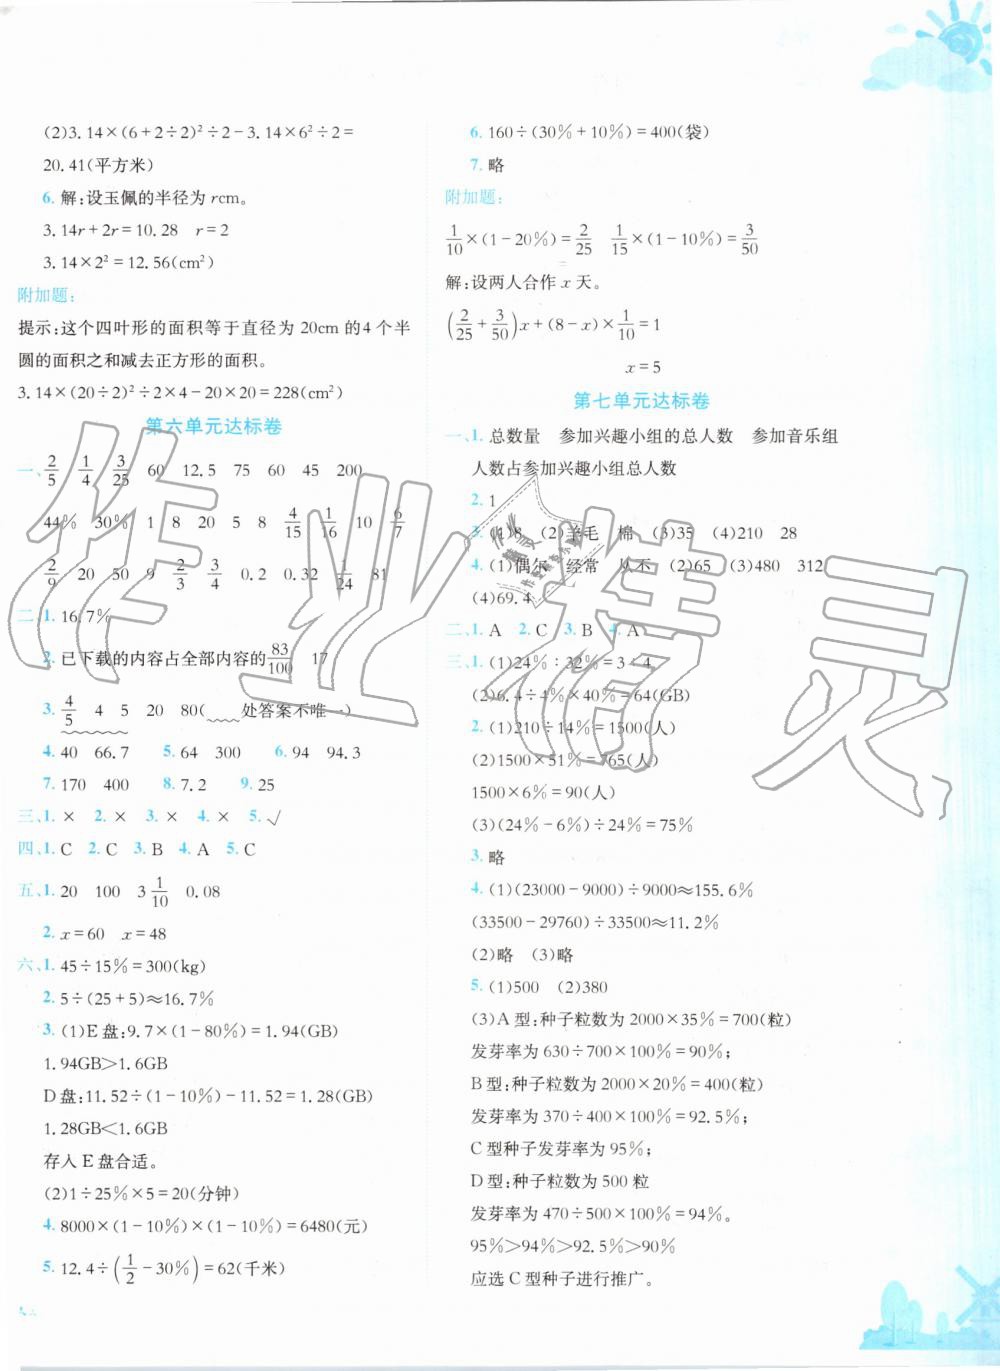 (2)3.14×(6+2÷2)²÷2-3.14×6²÷2=
20.41(平方米)
6. 解:设玉佩的半径为 rcm。
3.14r+2r=10.28 r=2
3.14×2²=12.56(cm²)
附加题:
提示:这个四叶形的面积等于直径为 20cm 的4个半
圆的面积之和减去正方形的面积。
3.14×(20÷2)²÷2×4-20×20=228(cm²)
第六单元达标卷
一、2/5 1/4 3/25 60 12.5 75 60 45 200
44% 30% 1 8 20 5 8 4/15 1/16 10 6/7
2/9 20 50 9 2/3 3/4 0.2 0.32 1/24 81
二、1. 16.7%
2. 已下载的内容占全部内容的83/100 17
3. 4/5 4 5 20 80( 处答案不唯一)
4. 40 66.7 5. 64 300 6. 94 94.3
7. 170 400 8. 7.2 9. 25
三、1. × 2. × 3. × 4. × 5. √
四、1. C 2. C 3. B 4. A 5. C
五、1. 20 100 3 1/10 0.08
2. x=60 x=48
六、1. 45÷15%=300(kg)
2. 5÷(25+5)≈16.7%
3. (1)E盘:9.7×(1-80%)=1.94(GB)
1.94GB>1.6GB
D盘:11.52÷(1-10%)-11.52=1.28(GB)
1.28GB<1.6GB
存入E盘合适。
(2)1÷25%×5=20(分钟)
4. 8000×(1-10%)×(1-10%)=6480(元)
5. 12.4÷(1/2-30%)=62(千米)
6. 160÷(30%+10%)=400(袋)
7. 略
附加题:
1/10×(1-20%)=2/25 1/15×(1-10%)=3/50
解:设两人合作 x 天。
(2/25+3/50)x+(8-x)×1/10=1
x=5
第七单元达标卷
一、1. 总数量 参加兴趣小组的总人数 参加音乐组
人数占参加兴趣小组总人数
2. 1
3. (1)8 (2)羊毛 棉 (3)35 (4)210 28
4. (1)偶尔 经常 从不 (2)65 (3)480 312
(4)69.4
二、1. A 2. C 3. B 4. A
三、1. (1)24%:32%=3:4
(2)6.4÷4%×40%=64(GB)
2. (1)210÷14%=1500(人)
(2)1500×51%=765(人)
1500×6%=90(人)
(3)(24%-6%)÷24%=75%
3. 略
4. (1)(23000-9000)÷9000≈155.6%
(33500-29760)÷33500≈11.2%
(2)略 (3)略
5. (1)500 (2)380
(3)A型:种子粒数为2000×35%=700(粒)
发芽率为630÷700×100%=90%;
B型:种子粒数为2000×20%=400(粒)
发芽率为370÷400×100%=92.5%;
C型种子发芽率为95%;
D型:种子粒数为500粒
发芽率为470÷500×100%=94%。
95%>94%>92.5%>90%
应选C型种子进行推广。
作业精灵